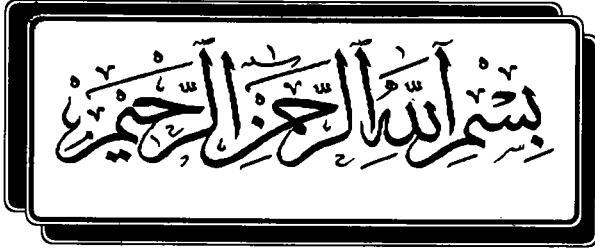 بِسْمِ ٱللَّٰهِ ٱلرَّحْمَٰنِ ٱلرَّحِيمِ